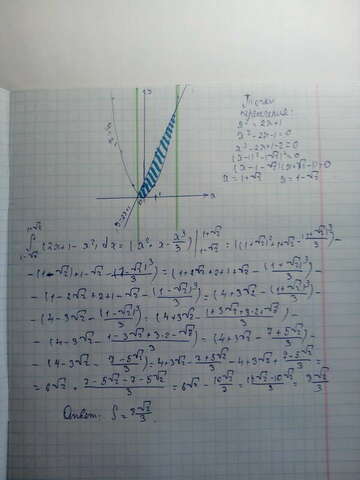 Точки
пересечения:
x² = 2x+1
x² - 2x - 1 = 0
x² - 2x + 1 - 2 = 0
(x-1)² - (√2)² = 0
(x - 1 - √2)(x + √2 - 1) = 0
x = 1+√2 x = 1-√2
∫ (2x + 1 - x²) dx = (x² + x - x³/3) | = ((1+√2)² + 1+√2 - (1+√2)³/3) -
- (1-√2)² + 1-√2 - (1-√2)³/3) = (1+2√2 + 2 + 1 + √2 - (1+√2)³/3) -
- (1-2√2 + 2 + 1 - √2 - (1-√2)³/3) = (4+3√2 - (1+√2)³/3) -
- (4-3√2 - (1-√2)³/3) = (4+3√2 - (1+3√2+3·2+√2)/3) -
- (4-3√2 - (1-3√2+3·2-√2)/3) = (4+3√2 - (7+5√2)/3) -
- (4-3√2 - (7-5√2)/3) = 4+3√2 - (7+5√2)/3 - 4+3√2 + (7-5√2)/3 =
= 6√2 + (7-5√2-7-5√2)/3 = 6√2 - 10√2/3 = (18√2-10√2)/3 = 8√2/3
Ответ: S = 8√2/3.